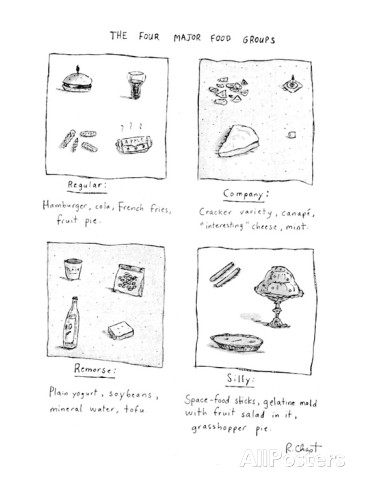 THE FOUR MAJOR FOOD GROUPS
APPLE
Regular:
Hamburger, cola, French fries,
fruit pie.
Company:
Cracker variety, canapé,
"interesting" cheese, mint.
Remorse:
Plain yogurt, soybeans,
mineral water, tofu
Silly:
Space-food sticks, gelatine mold
with fruit salad in it,
grasshopper pie.
R. Chast
AllPosters